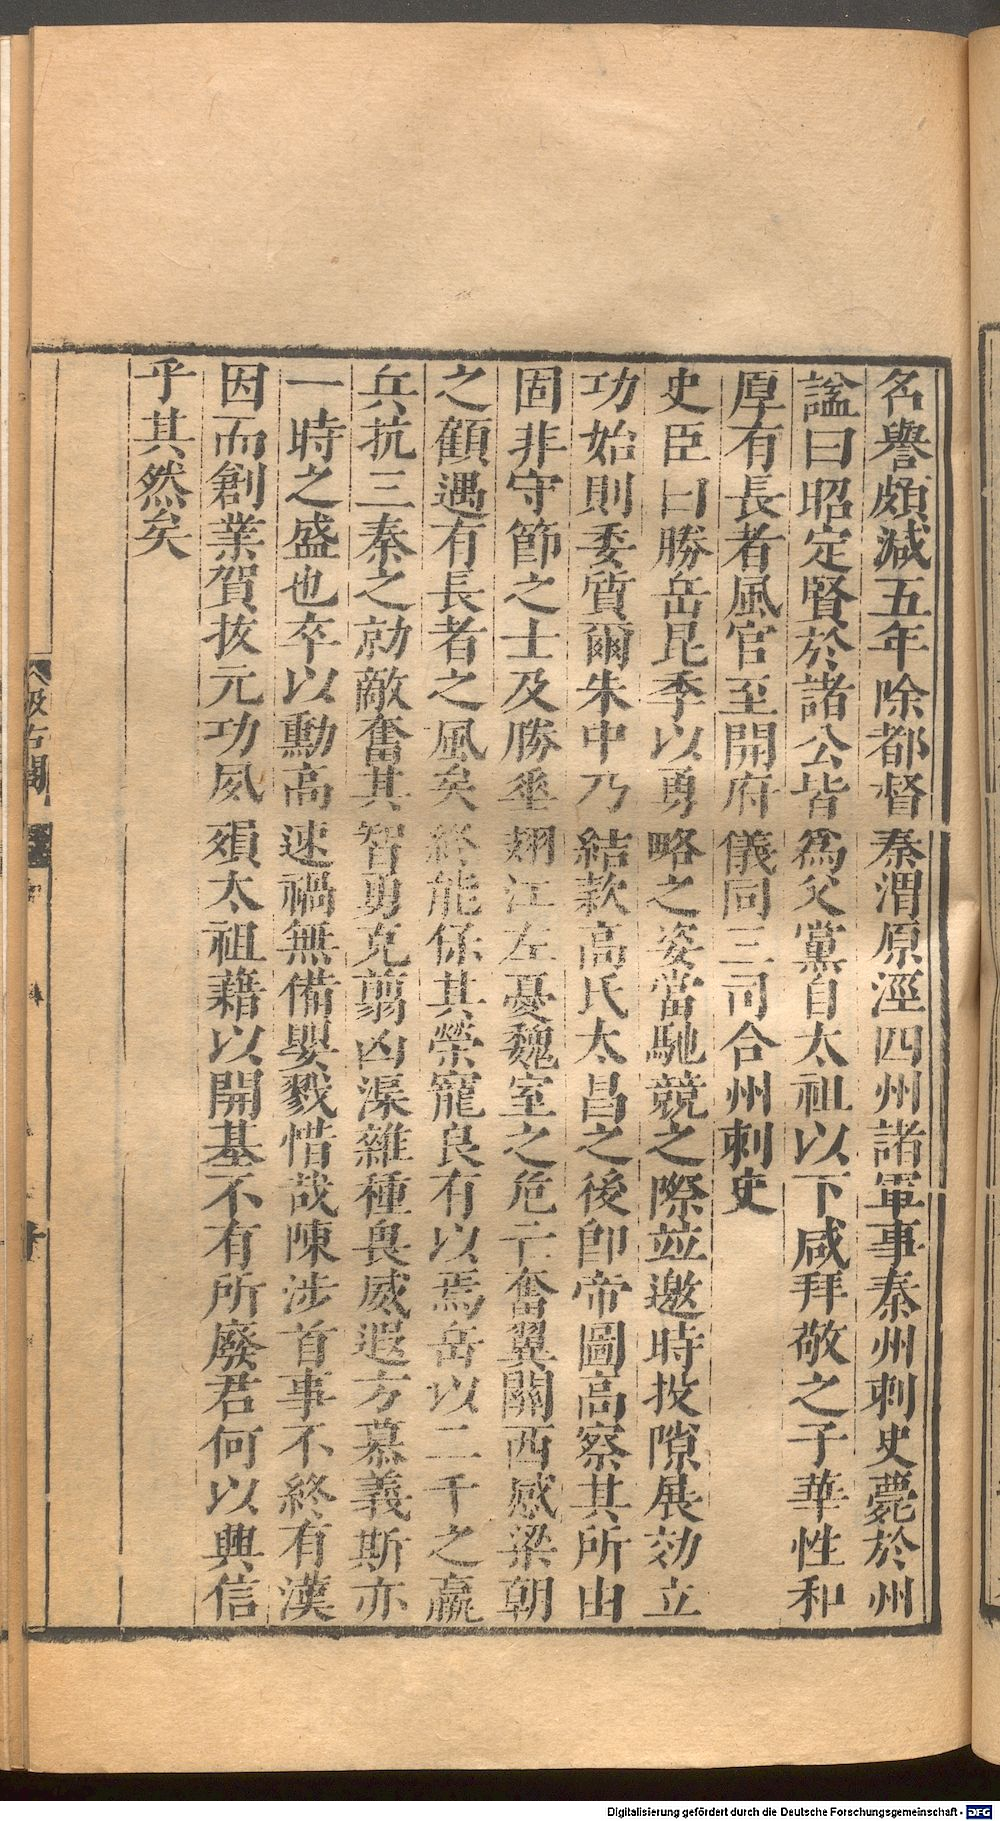 名譽頗減五年除都督秦渭原涇四州諸軍事秦州刺史薨於州
諡曰昭定賢於諸公皆爲父黨自太祖以下咸拜敬之子華性和
厚有長者風官至開府儀同三司合州刺史
史臣曰勝岳昆季以勇略之姿當馳競之際並邀時投隙展効立
功始則委質爾朱中乃結款高氏太昌之後即帝圖高察其所由
固非守節之士及勝垂翅江左憂魏室之危亡奮翼關西感梁朝
之顧遇有長者之風矣終能保其榮寵良有以焉岳以二千之羸
兵抗三秦之勍敵奮其智勇克翦凶渠雜種畏威遐方慕義斯亦
一時之盛也卒以勳高速禍無備嬰戮惜哉陳涉首事不終有漢
因而創業賀拔元功夙殞太祖藉以開基不有所廢君何以興信
乎其然矣
汲古閣
Digitalisierung gefördert durch die Deutsche Forschungsgemeinschaft - DFG